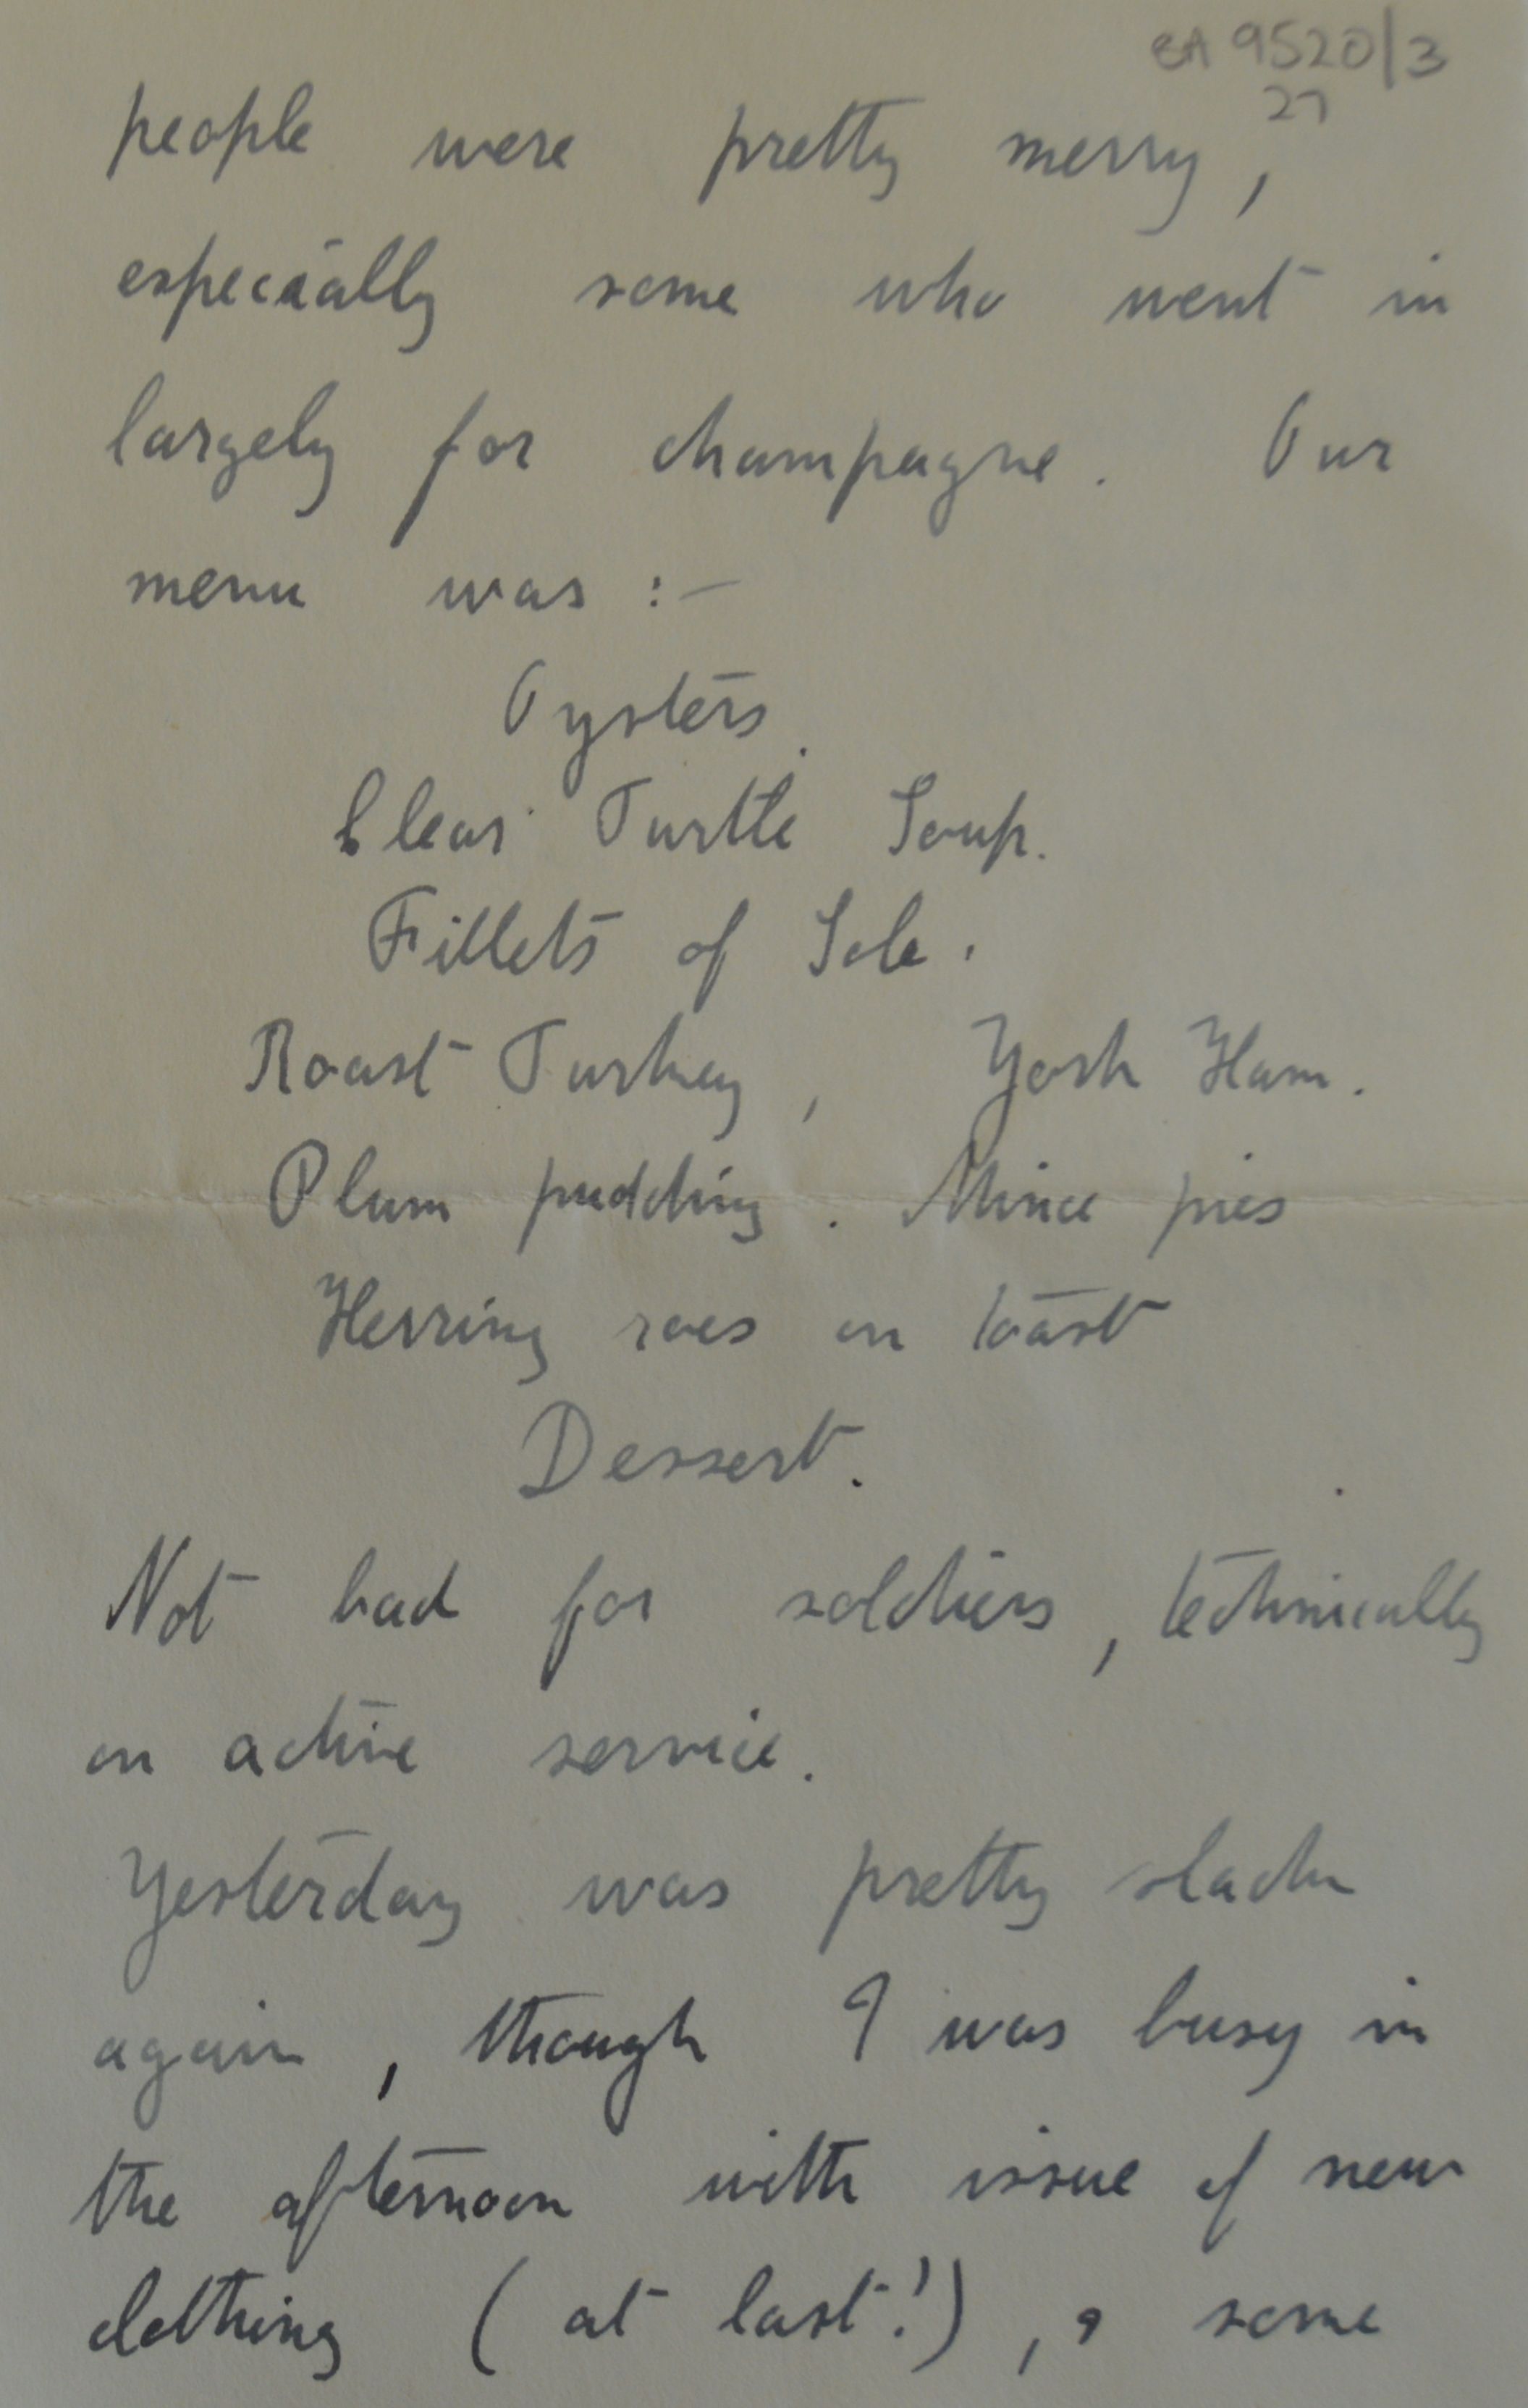 BA 9520/3
27
people were pretty merry,
especially some who went in
largely for champagne. Our
menu was :-
Oysters.
Clear Turtle Soup.
Fillets of Sole.
Roast Turkey, York Ham.
Plum pudding. Mince pies
Herring roes on toast
Dessert.
Not bad for soldiers, technically
on active service.
Yesterday was pretty slack
again, though I was busy in
the afternoon with issue of new
clothing (at last!), & some